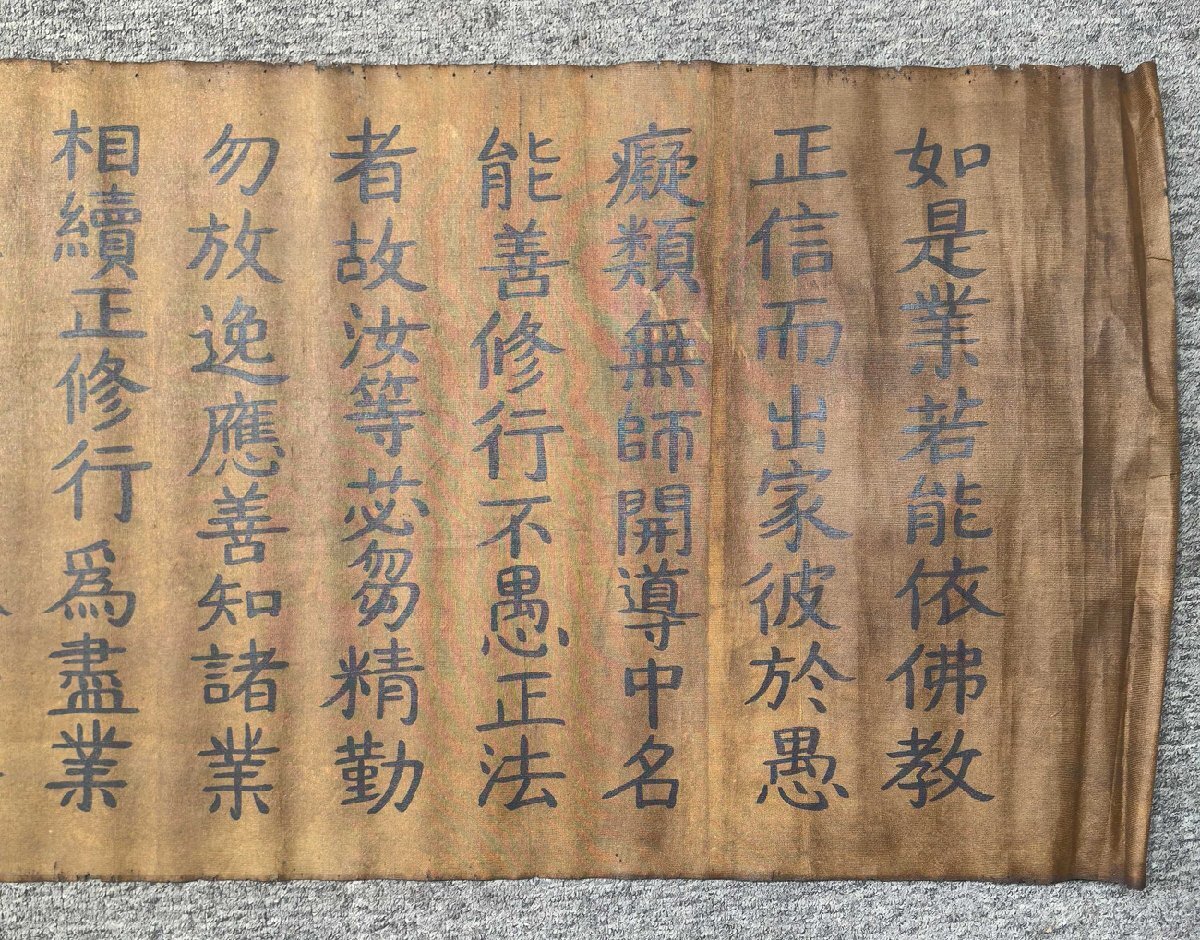 如是業若能依佛教
正信而出家彼於愚
癡類無師開導中名
能善修行不愚正法
者故汝等苾芻精勤
勿放逸應善知諸業
相續正修行為盡業